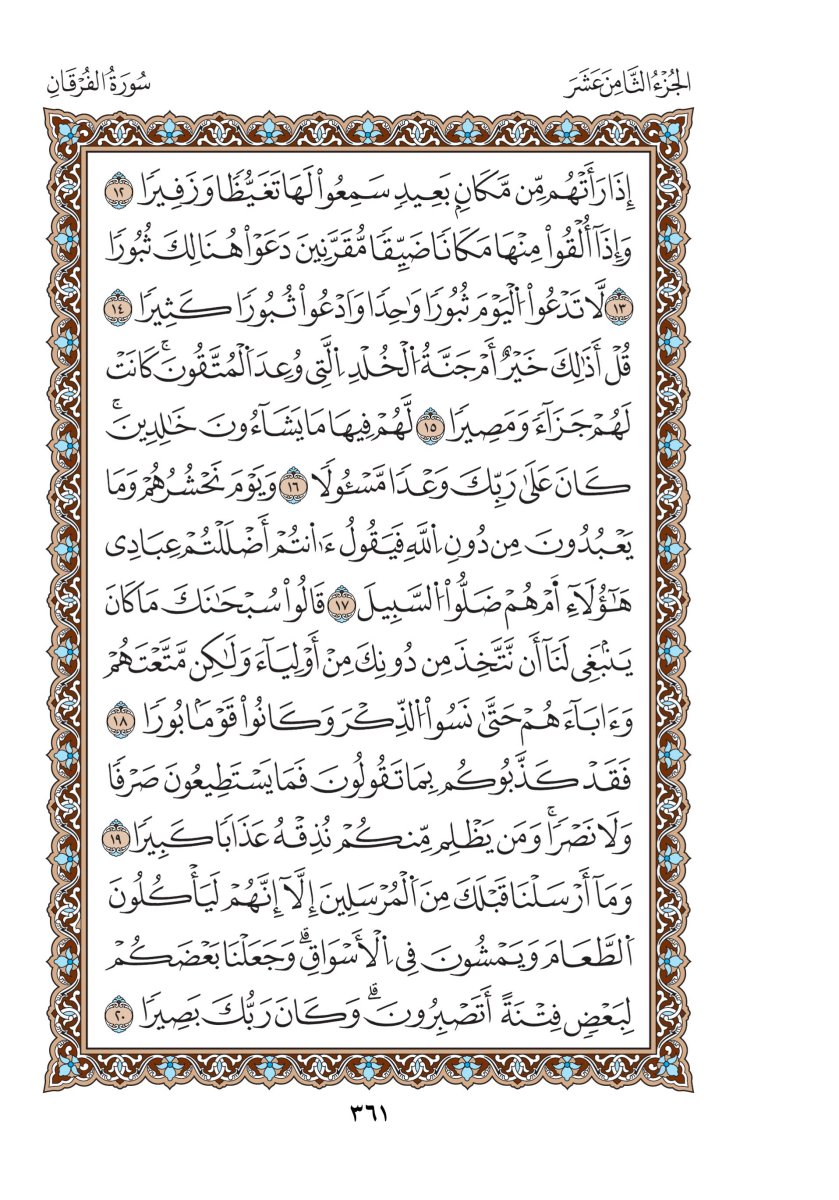 الجُزْءُ الثَّامِنَ عَشَرَ
سُورَةُ الفُرْقَانِ
إِذَا رَأَتْهُم مِّن مَّكَانِۭ بَعِيدٍ سَمِعُوا۟ لَهَا تَغَيُّظًا وَزَفِيرًا ١٢
وَإِذَآ أُلْقُوا۟ مِنْهَا مَكَانًا ضَيِّقًا مُّقَرَّنِينَ دَعَوْا۟ هُنَالِكَ ثُبُورًا
١٣ لَّا تَدْعُوا۟ اُ۬لْيَوْمَ ثُبُورًا وَٰحِدًا وَادْعُوا۟ ثُبُورًا كَثِيرًا ١٤
قُلْ أَذَٰلِكَ خَيْرٌ أَمْ جَنَّةُ اُ۬لْخُلْدِ اِ۬لَّتِى وُعِدَ اَ۬لْمُتَّقُونَۚ كَانَتْ
لَهُمْ جَزَآءً وَمَصِيرًا ١٥ لَّهُمْ فِيهَا مَا يَشَآءُونَ خَٰلِدِينَۚ
كَانَ عَلَىٰ رَبِّكَ وَعْدًا مَّسْـُٔولًا ١٦ وَيَوْمَ نَحْشُرُهُمْ وَمَا
يَعْبُدُونَ مِن دُونِ اِ۬للَّهِ فَيَقُولُ ءَا۬نتُمْ أَضْلَلْتُمْ عِبَادِى
هَٰٓؤُلَآءِ أَمْ هُمْ ضَلُّوا۟ اُ۬لسَّبِيلَ ١٧ قَالُوا۟ سُبْحَٰنَكَ مَا كَانَ
يَنۢبَغِى لَنَآ أَن نَّتَّخِذَ مِن دُونِكَ مِنْ أَوْلِيَآءَ وَلَٰكِن مَّتَّعْتَهُمْ
وَءَابَآءَهُمْ حَتَّىٰ نَسُوا۟ اُ۬لذِّكْرَ وَكَانُوا۟ قَوْمَۢا بُورًا ١٨
فَقَدْ كَذَّبُوكُم بِمَا تَقُولُونَ فَمَا يَسْتَطِيعُونَ صَرْفًا
وَلَا نَصْرًاۚ وَمَن يَظْلِم مِّنكُمْ نُذِقْهُ عَذَابًا كَبِيرًا ١٩
وَمَآ أَرْسَلْنَا قَبْلَكَ مِنَ اَ۬لْمُرْسَلِينَ إِلَّآ إِنَّهُمْ لَيَأْكُلُونَ
اَ۬لطَّعَامَ وَيَمْشُونَ فِى اِ۬لْأَسْوَاقِۗ وَجَعَلْنَا بَعْضَكُمْ
لِبَعْضٍ فِتْنَةً أَتَصْبِرُونَۗ وَكَانَ رَبُّكَ بَصِيرًا ٢٠
٣٦١